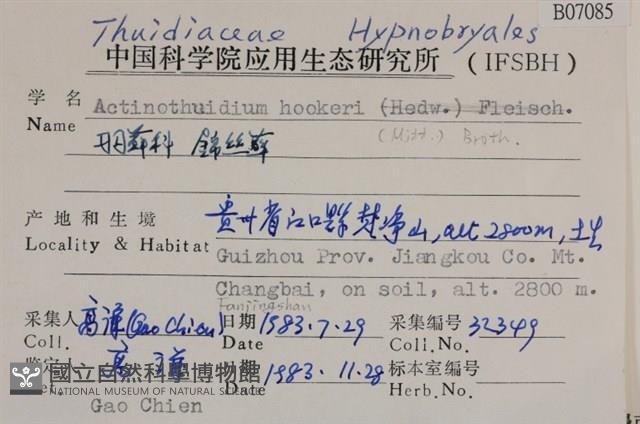 B07085
Thuidiaceae Hypnobryales
中国科学院应用生态研究所 (IFSBH)
学名 Actinothuidium hookeri (Hedw.) Fleisch.
Name (Mitt.) Broth.
羽藓科 錦丝藓
产地和生境 贵州省江口縣梵净山, alt 2800m, 土生
Locality & Habitat Guizhou Prov. Jiangkou Co. Mt.
Changbai, on soil, alt. 2800 m.
Fanjingshan
采集人 高谦(Gao Chien) 日期 1983.7.29 采集编号 32349
Coll. Date Coll. No.
鉴定人 高谦 日期 1983.11.28 标本室编号
Date Herb. No.
國立自然科學博物館
NATIONAL MUSEUM OF NATURAL SCIENCE
Gao Chien